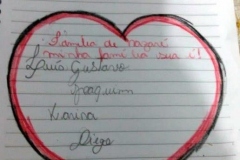 Família de Nazaré
minha família sua é!
Luís Gustavo
Joaquim
Karina
Diego